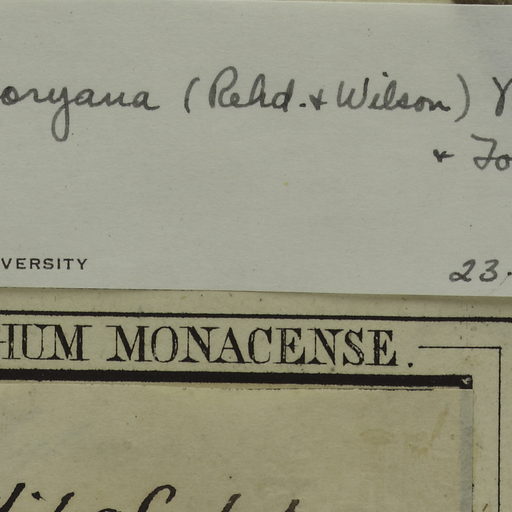 oryana (Rehd. & Wilson)
&
VERSITY 23.
HUM MONACENSE.